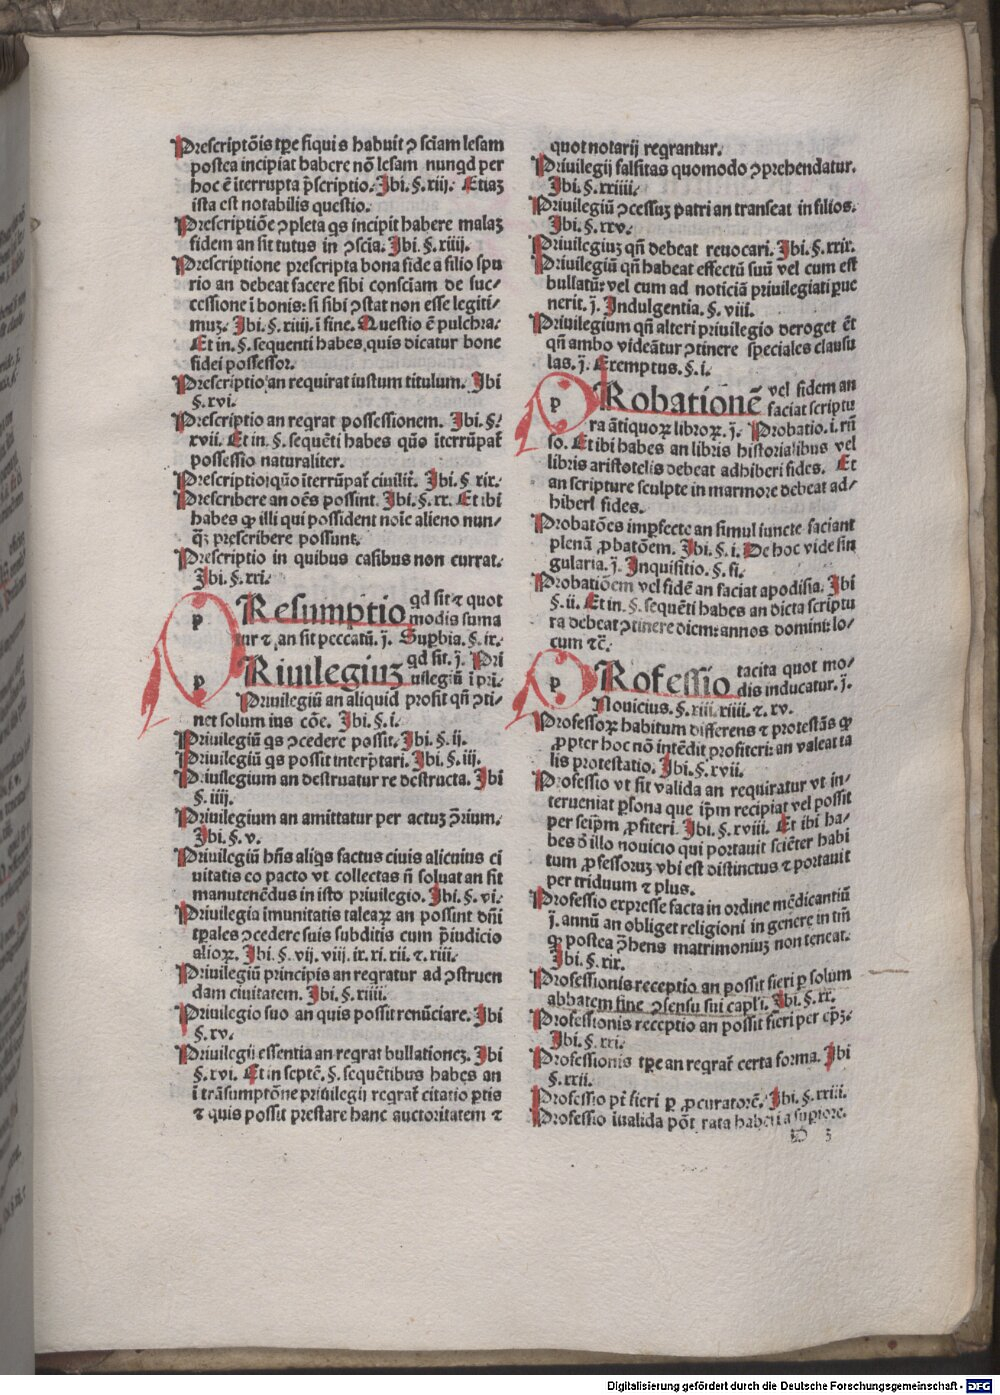 Prescriptōis tp̄e si quis habuit ꝯsciam lesam
postea incipiat habere nō lesam nunqd per
hoc ē īterrupta p̄scriptio. Ibi. §. xiij. Etiaz
ista est notabilis questio.
Prescriptiōe ꝯpleta qs incipit habere malaz
fidem an sit tutus in ꝯscia. Ibi. §. xiiij.
Prescriptione prescripta bona fide a filio spu
rio an debeat facere sibi consciam de suc/
cessione ī bonis: si sibi ꝯstat non esse legiti/
muz. Ibi. §. xiiij. ī fine. Questio ē pulchra.
Et in. §. sequenti habes, quis dicatur bone
fidei possessor.
Prescriptio an requirat iustum titulum. Ibi
§. xvi.
Prescriptio an reqrat possessionem. Ibi. §.
xvii. Et in. §. sequēti habes quō īterrūpat̄
possessio naturaliter.
Prescriptio quō īterrūpat̄ civilit̄. Ibi. §. xix.
Prescribere an oēs possint. Ibi. §. xx. Et ibi
habes ꝙ illi qui possident noīe alieno nun/
q̄ꝫ prescribere possunt.
Prescriptio in quibus casibus non currat.
Ibi. §. xxi.
p REsumptio qd sit ⁊ quot
modis suma
tur ⁊ an sit peccatū. j. Suꝑbia. §. ix.
p RIuilegiuz qd sit. j. Pri
uilegiū ī pri.
Priuilegiū an aliquid prosit qn̄ ꝯti/
net solum ius cōe. Ibi. §. i.
Priuilegiū qs ꝯcedere possit. Ibi. §. ij.
Priuilegiū qs possit interp̄tari. Ibi. §. iij.
Priuilegium an destruatur re destructa. Ibi
§. iiij.
Priuilegium an amittatur per actuz ꝯ̄rium.
Ibi. §. v.
Priuilegiū hn̄s aliqs factus ciuis alicuius ci
uitatis eo pacto vt collectas n̄ soluat an sit
manutenēdus in isto priuilegio. Ibi. §. vi.
Priuilegia imunitatis taleaꝝ an possint dn̄i
tp̄ales ꝯcedere suis subditis cum p̄iudicio
alioꝝ. Ibi. §. vij. viij. ix. xi. xii. ⁊. xiii.
Priuilegiū principis an reqratur ad ꝯstruen
dam ciuitatem. Ibi. §. xiiii.
Priuilegio suo an quis possit renūciare. Ibi
§. xv.
Priuilegij essentia an reqrat bullationeꝫ. Ibi
§. xvi. Et in septē. §. sequētibus habes an
ī trāsumptōne priuilegij reqrat̄ citatio ꝑtis
⁊ quis possit prestare hanc auctoritatem ⁊
quot notarij reqrantur.
Priuilegij falsitas quomodo ꝯprehendatur.
Ibi. §. xxiiii.
Priuilegiū ꝯcessuꝫ patri an transeat in filios.
Ibi. §. xxv.
Priuilegiuꝫ qn̄ debeat reuocari. Ibi. §. xxix.
Priuilegiū qn̄ habeat effectū suū vel cum est
bullatū: vel cum ad noticiā priuilegiati ꝑue
nerit. j. Indulgentia. §. viii.
Priuilegium qn̄ alteri priuilegio deroget ēt
qn̄ ambo videātur ꝯtinere speciales clausu
las. j. Exemptus. §. i.
p RObationē vel fidem an
faciat scriptu
ra ātiquoꝝ libroꝝ. j. Probatio. i. rn̄
so. Et ibi habes an libris historialibus vel
libris aristotelis debeat adhiberi fides. Et
an scripture sculpte in marmore debeat ad/
hiberi fides.
Probatōes imꝑfecte an simul iuncte faciant
plenā ꝓbatōem. Ibi. §. i. De hoc vide sin
gularia. j. Inquisitio. §. fi.
Probatiōem vel fidē an faciat apodisia. Ibi
§. ii. Et in. §. sequēti habes an dicta scriptu
ra debeat ꝯtinere diem: annos domini: lo/
cum ⁊c̄.
p ROfessio tacita quot mo/
dis inducatur. j.
Nouicius. §. xiii. xiiii. ⁊. xv.
Professoꝝ habitum differens ⁊ protestās ꝙ
ꝓpter hoc nō intēdit profiteri: an valeat ta
lis protestatio. Ibi. §. xvii.
Professio vt sit valida an requiratur vt in/
terueniat ꝑsona que ip̄m recipiat vel possit
per seip̄m ꝓfiteri. Ibi. §. xviii. Et ibi ha/
bes d̄ illo nouicio qui portauit sciēter habi
tum ꝓfessoruꝫ vbi est distinctus ⁊ portauit
per triduum ⁊ plus.
Professio expresse facta in ordine mēdicantiū
j. annū an obliget religioni in genere in tm̄
ꝙ postea ꝯ̄hens matrimoniuꝫ non teneat.
Ibi. §. xix.
Professionis receptio an possit fieri ꝑ solum
abbatem sine ꝯsensu sui capl̄i. Ibi. §. xx.
Professionis receptio an possit fieri per ep̄ꝫ.
Ibi. §. xxi.
Professionis tp̄e an reqrat̄ certa forma. Ibi
§. xxii.
Professio pt̄ fieri ꝑ ꝓcuratorē. Ibi. §. xxiii.
Professio īualida pōt rata haberi a suꝑiore.
Digitalisierung gefördert durch die Deutsche Forschungsgemeinschaft - DFG